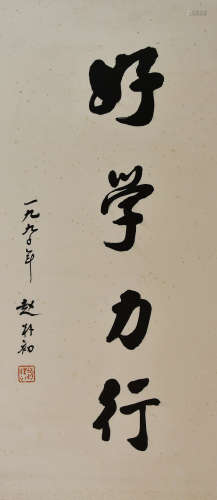 好学力行
一九九〇年 赵朴初